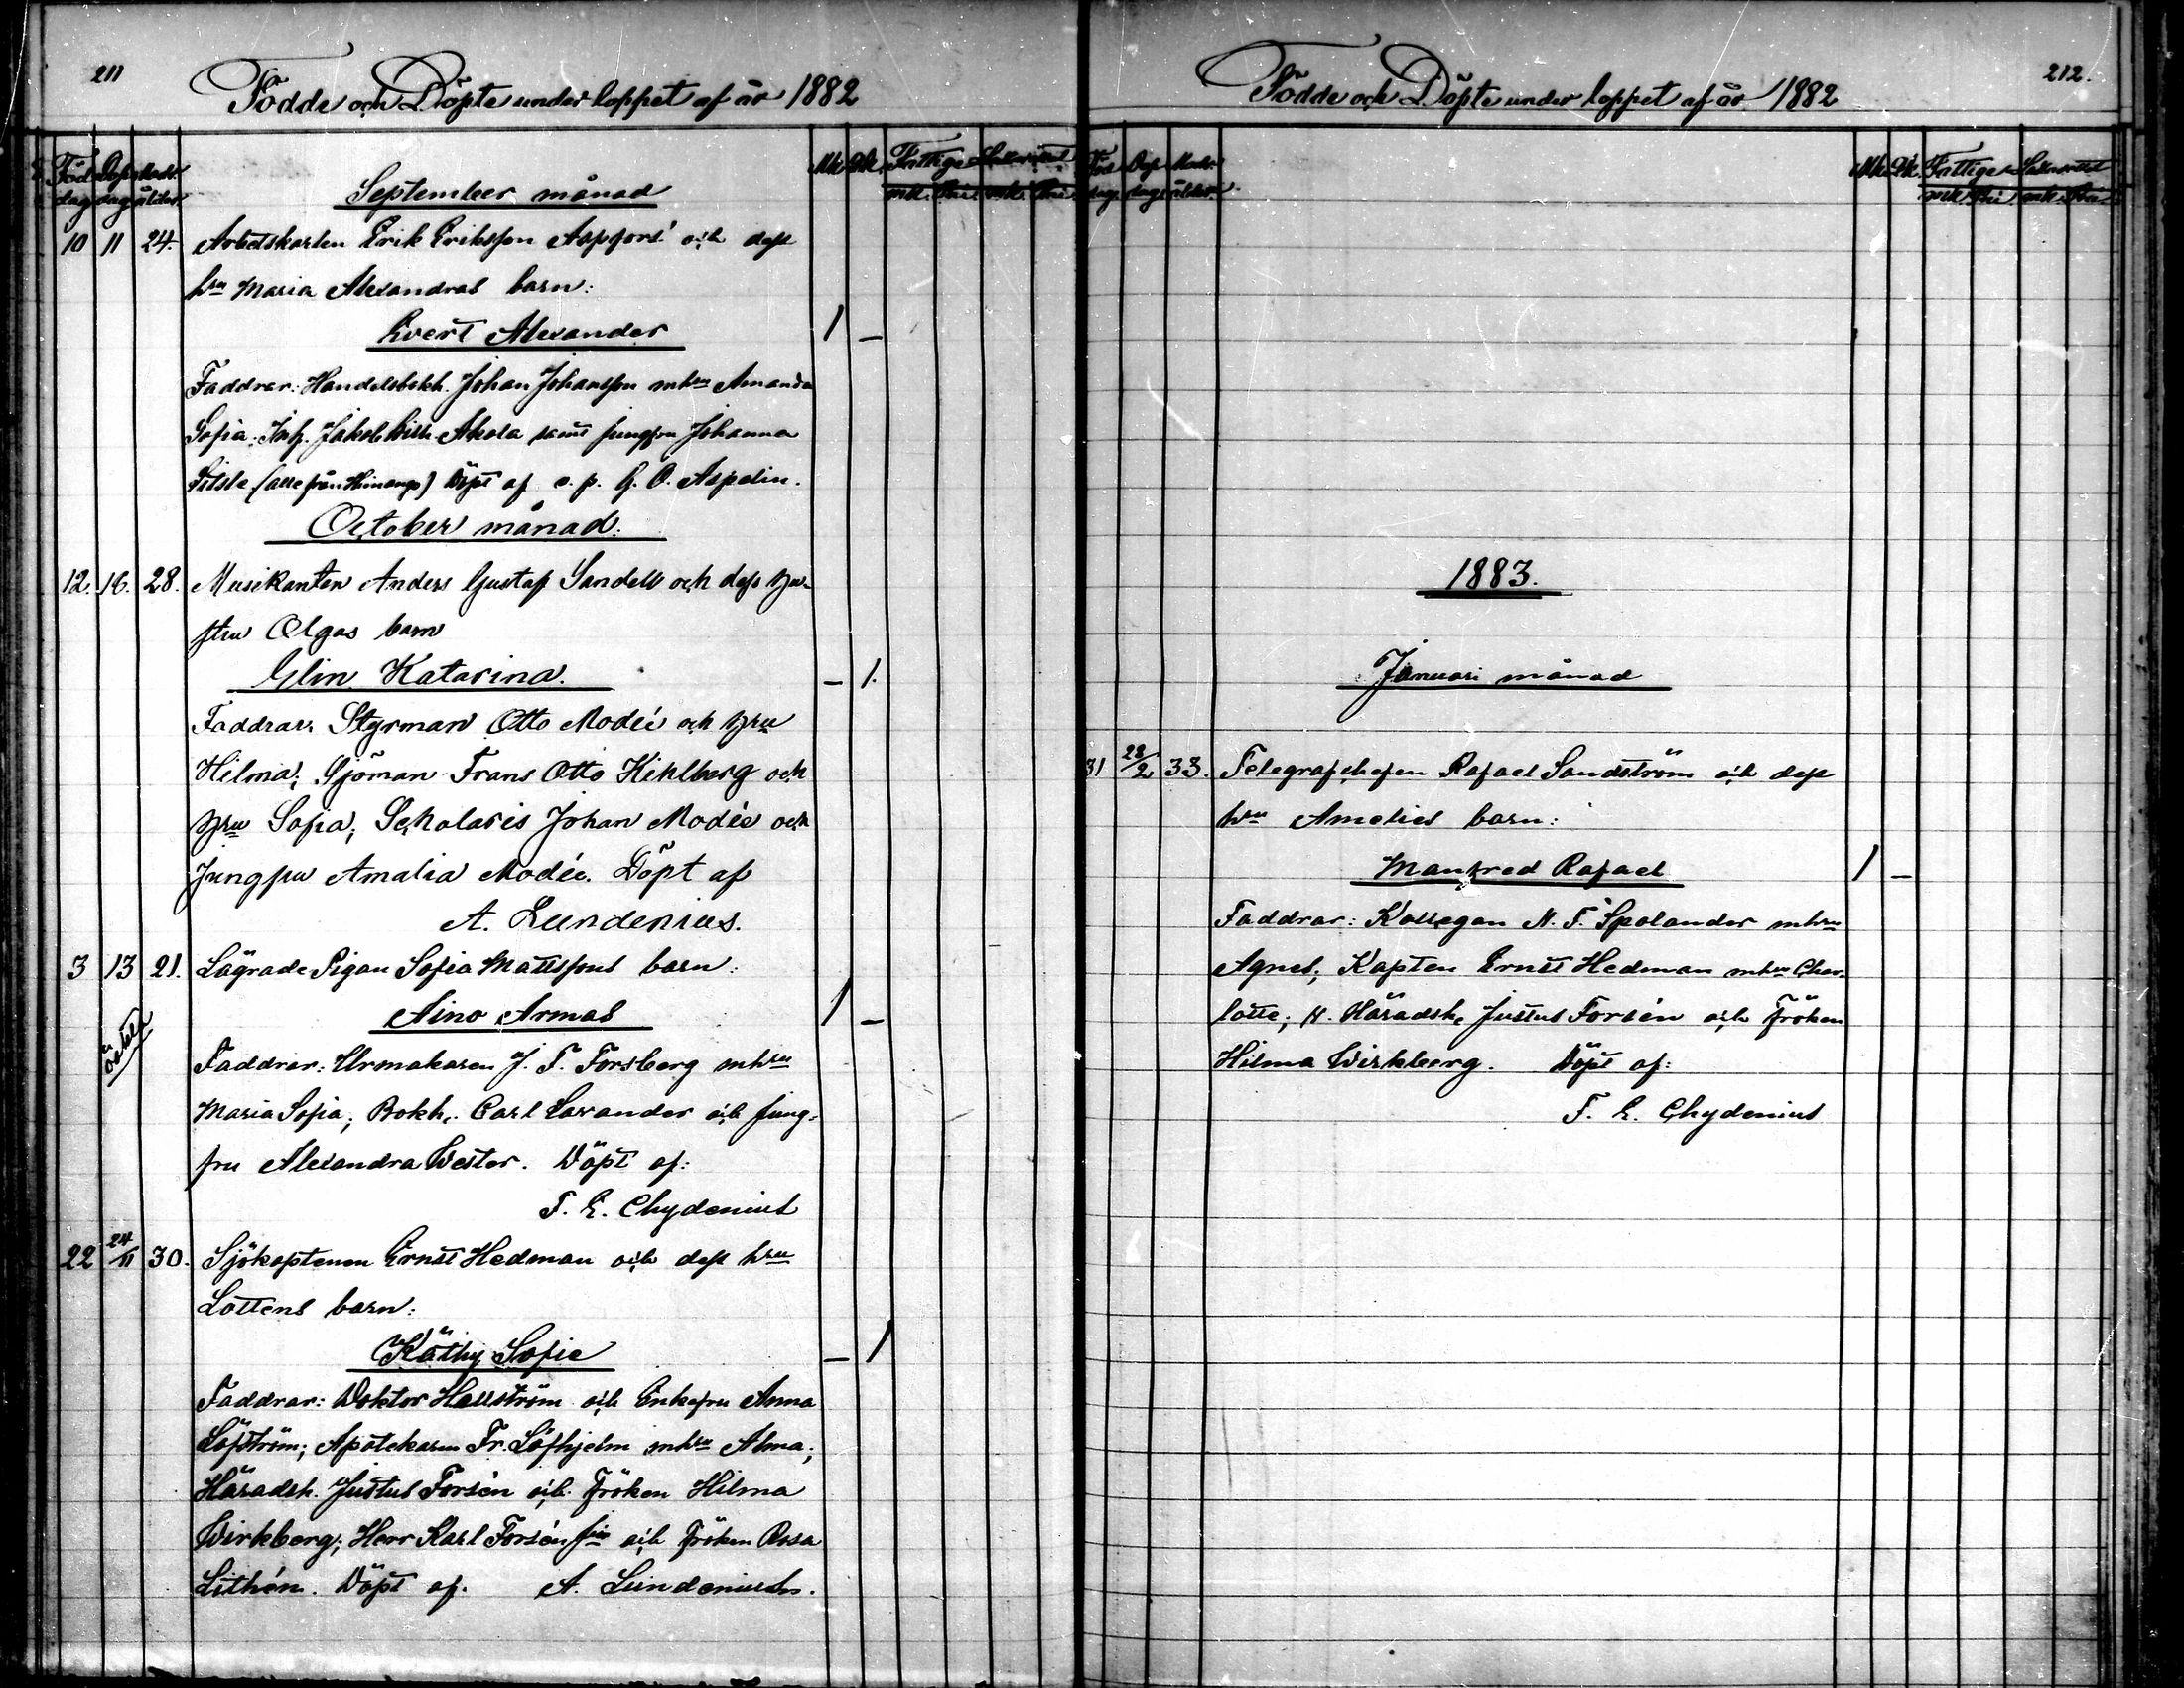 211
Födde och Döpte under loppet af år 1882
Föd. dag Döp. dag Modr. ålder Mk. Qk. Fattige Sakristid
mk. Pni mk. Pni
September månad
10 11 24. Arbetskarlen Erik Eriksson Aspfors' och dess
hru Maria Alexandras barn:
Evert Alexander 1 –
Faddrar: Handelsbokh. Johan Johansson mhru Amanda
Sofia; Jakob Akola samt jungfru Johanna
(alla från Himango) Döpt af v. p. G. O. Aspelin.
October månad.
12. 16. 28. Musikanten Anders Gustaf Sandell och dess hu-
stru Olgas barn
Elin Katarina. – 1.
Faddrar: Styrman Otto Modée och hru
Hilma; Sjöman Frans Otto Kihlberg och
hru Sofia; Scholaris Johan Modée och
Jungfru Amalia Modée. Döpt af
A. Lundenius.
3 13 21. Lägrade Pigan Sofia Mattssons barn:
oäkta
Aino Armas 1 –
Faddrar: Urmakaren J. F. Forsberg mhru
Maria Sofia; Bokh. Carl Savander och jung-
fru Alexandra Wester. Döpt af:
F. E. Chydenius
22 24/11 30. Sjökaptenen Ernst Hedman och dess hru
Lottens barn:
Käthy Sofie – 1
Faddrar: Doktor Hällström och Enkefru Anna
Löfström; Apotekaren Fr. Löfhjelm mhru Alma;
Häradsh. Justus Forsén och Fröken Hilma
Wirkberg; Herr Karl Forsén jun och Fröken Rosa
Lithén. Döpt af. A. Lundenius.
212.
Födde och Döpte under loppet af år 1882
Föd. dag. Döp. dag Modr. ålder. Mk. Qk. Fattige Sakristid
mk Pni mk Pni
1883.
Januari månad
31 28/2 33. Telegrafchefen Rafael Sandström och dess
hru Amelies barn:
Manfred Rafael 1 –
Faddrar: Kollegan N. F. Spolander mhru
Agnes; Kapten Ernst Hedman mhru Char-
lotte; H. Häradsh. Justus Forsén och Fröken
Hilma Wirkberg. Döpt af:
F. E. Chydenius